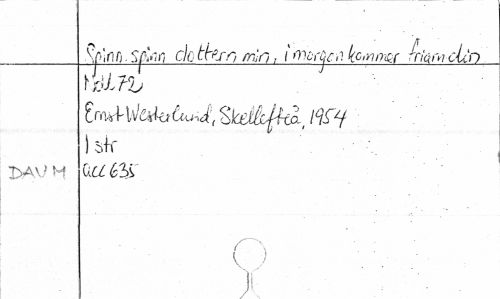 Spinn. spinn dottern min, i morgon kommer friarn din
72
Ernst Westerlund, Skellefteå, 1954
1 str
DAUM acc 635